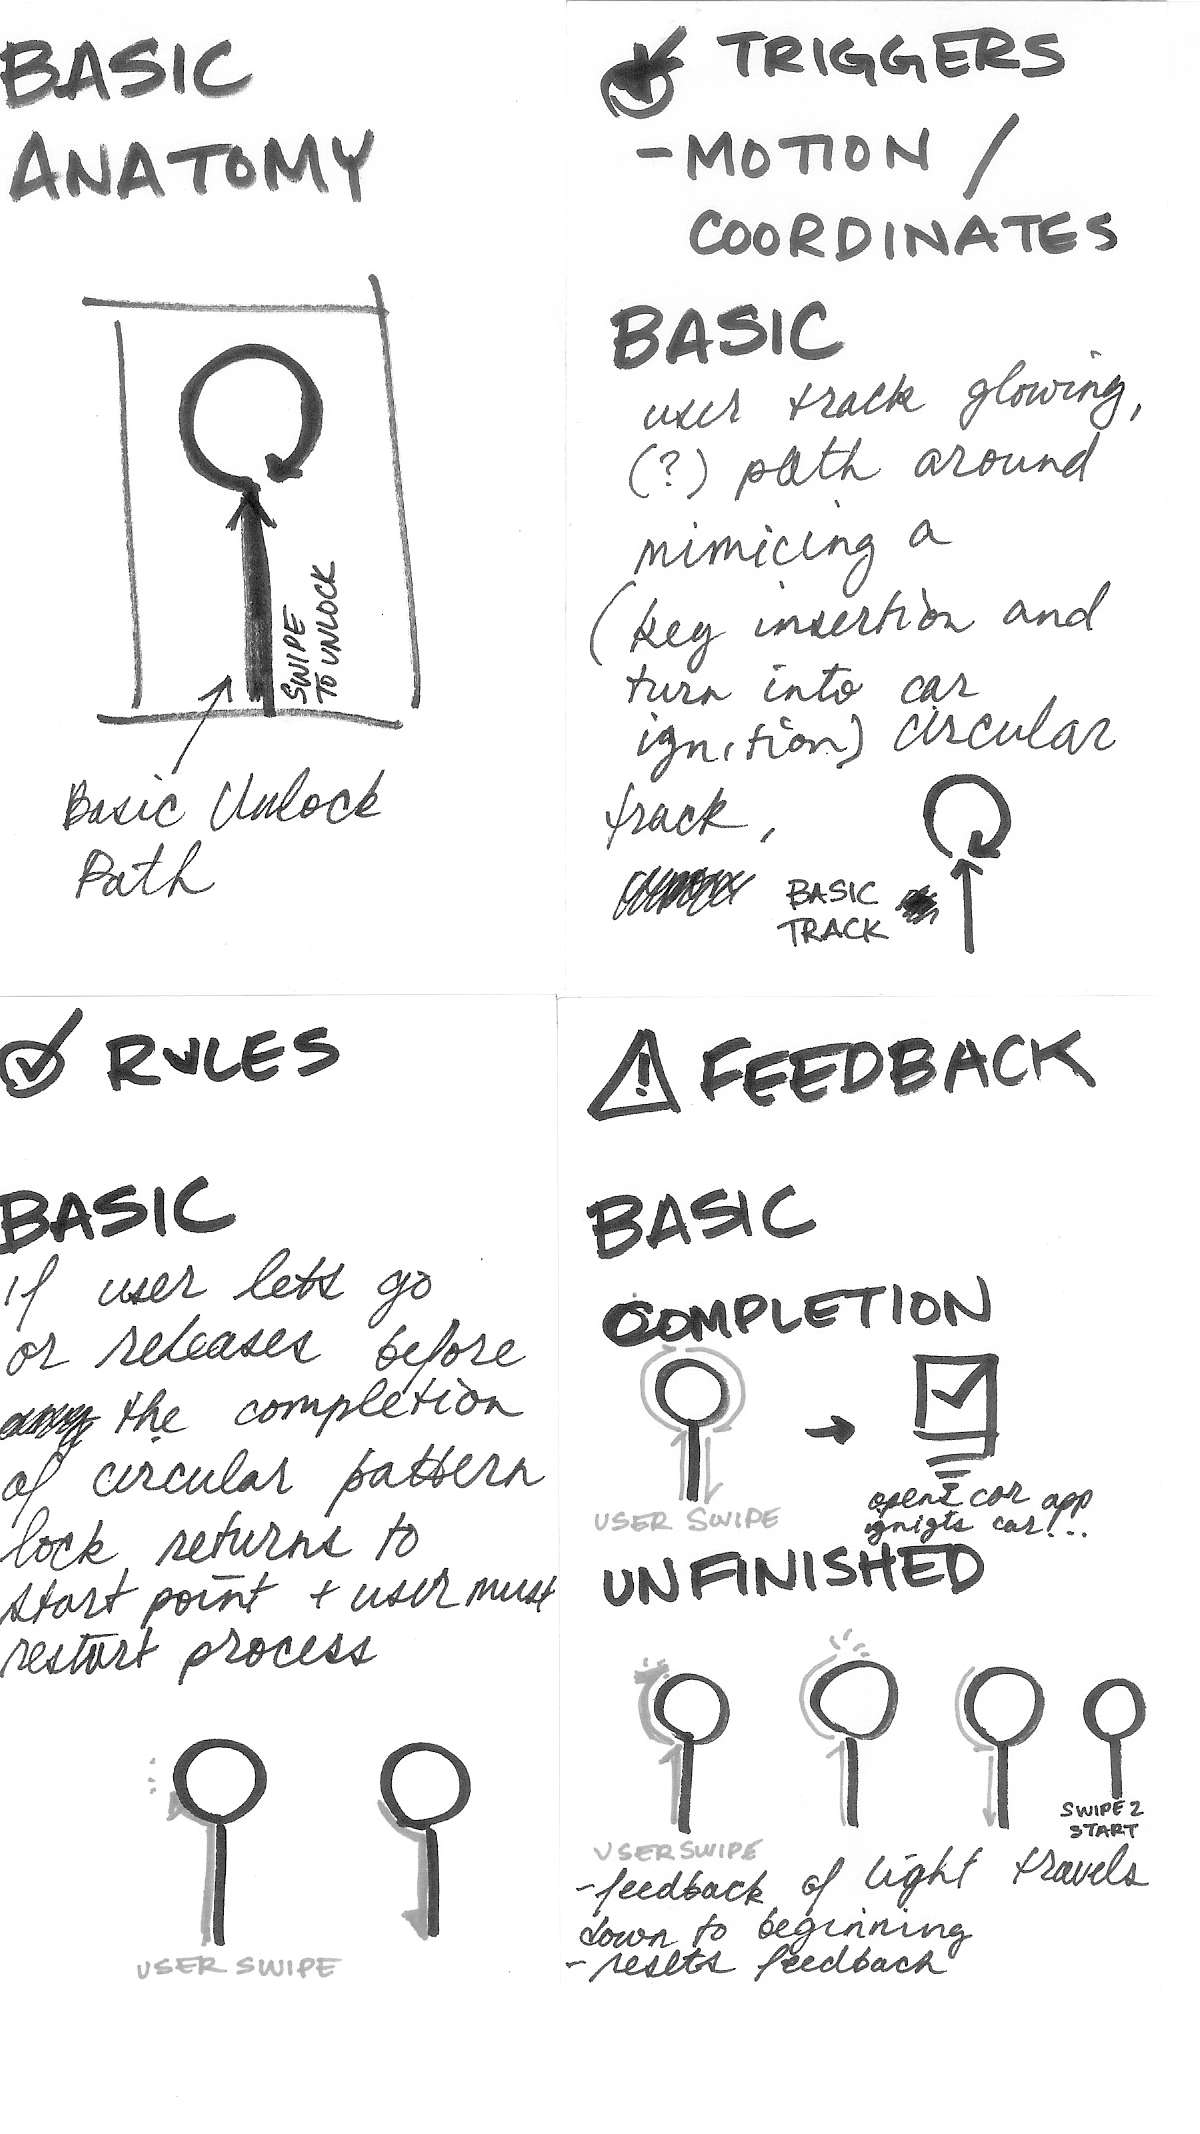 BASIC
ANATOMY
SWIPE
TO UNLOCK
Basic Unlock
Path
TRIGGERS
- MOTION /
COORDINATES
BASIC
user track glowing,
(?) path around
mimicing a
(key insertion and
turn into car
ignition) circular
track,
BASIC
TRACK
RULES
BASIC
If user lets go
or releases before
the completion
of circular pattern
lock returns to
start point + user must
restart process
USER SWIPE
FEEDBACK
BASIC
COMPLETION
USER SWIPE
opens car app
ignigts car!...
UNFINISHED
SWIPE 2
START
USER SWIPE
- feedback of light travels
down to beginning
- resets feedback